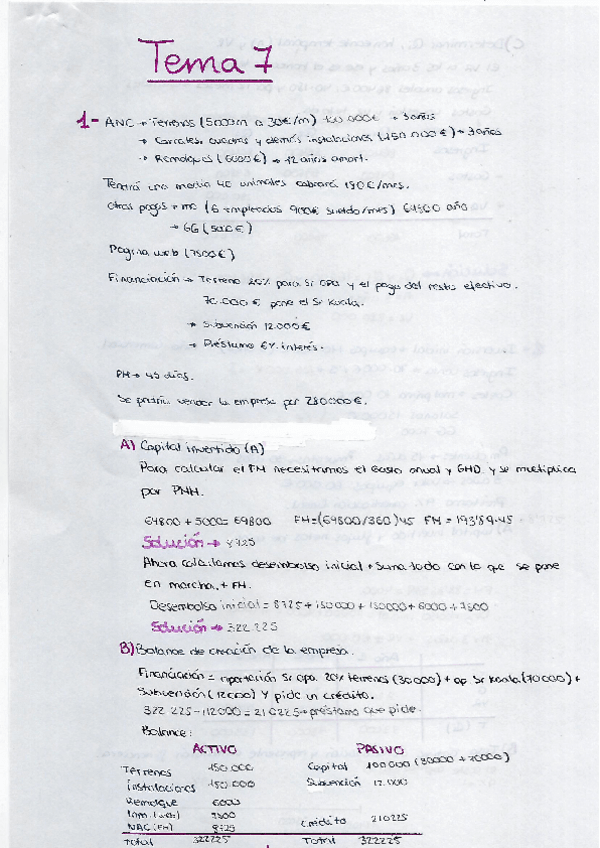 Tema 7
1- ANC → Terrenos (5000m a 30€/m) 150.000€ → 3 años
→ Corrales, cuadras y demás instalaciones (150.000€) → 3 años
→ Remolques (6000€) → 12 años amort.
Tendrá una media 40 animales cobrará 190€/mes.
Otros pagos → mo (6 empleados 900€ sueldo/mes) 64800 año
→ GG (5000€)
Pagina web (7500€)
Financiación → Terreno 20% para Sr Opa y el pago del resto efectivo.
70.000€ pone el Sr Koala.
→ Subvención 12.000€
→ Préstamo 6% interés.
PM → 45 días.
Se podría vender la empresa por 280000€.
A) Capital invertido (A)
Para calcular el FM necesitamos el Gasto anual y GMD y se multiplica
por PMM.
64800 + 5000 = 69800 FM=(69800/360)45 FM = 193'89·45
Solución → 8725
Ahora calculamos desembolso inicial → Suma todo con lo que se pone
en marcha. + FM.
Desembolso inicial = 8725+150000+150000+6000+7500
Solución → 322.225
B) Balance de creación de la empresa.
Financiación = aportación Sr opa. 20% terrenos (30000) + ap Sr Koala (70000) +
Subvención (12000) y pide un crédito.
322 225 - 112000 = 210225 → préstamo que pide.
Balance:
ACTIVO PASIVO
Terrenos 150.000 Capital 100 000 (30000 + 70000)
Instalaciones 150.000 Subvención 12.000
Remolque 6000
Inm. (web) 7500 Crédito 210225
NAC (FM) 8725
Total 322225 Total 322225